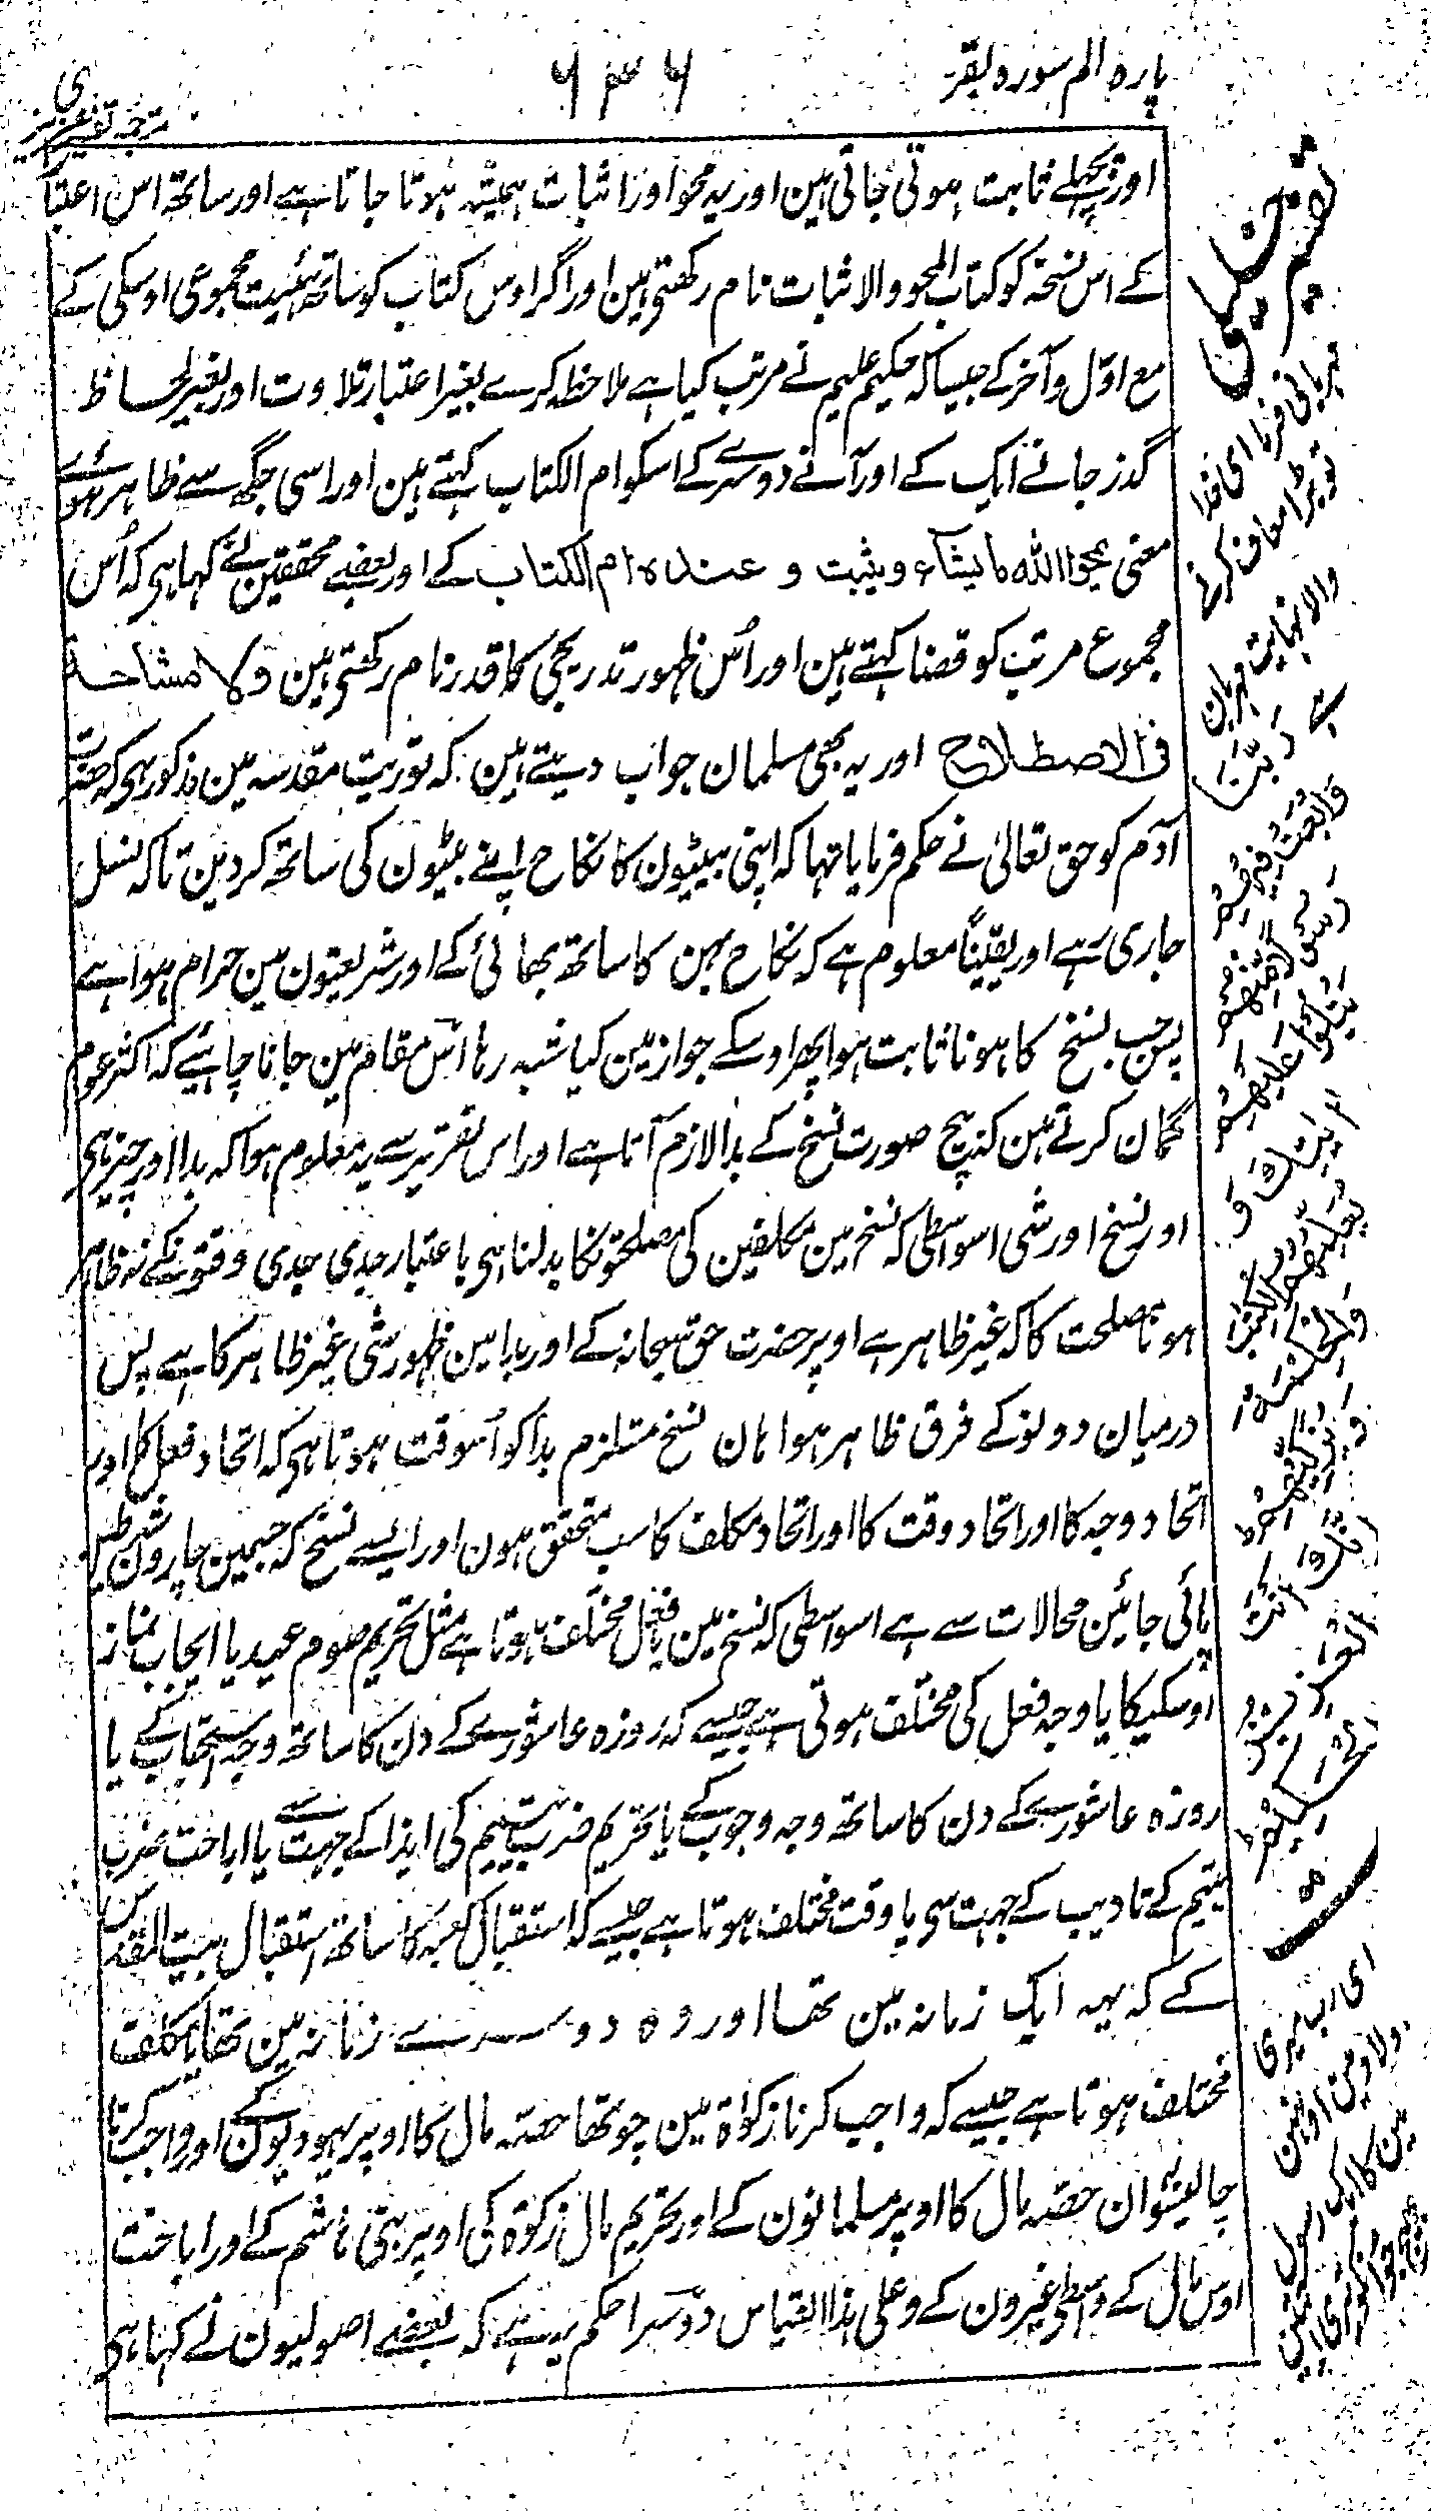 پارہ الم سورہ بقر
۶۳۶
ترجمہ تفسیر عزیزی
اور پچھلے ثابت ہوتی جاتی ہین اور یہ محو اور اثبات ہمیشہ ہوتا جاتا ہے اور ساتھ اس اعتبا
کے اس نسخہ کو کتاب المحو والاثبات نام رکھتی ہین اور اگر اوس کتاب کو ساتھ ہئیت مجموعی اوسکی کے
مع اوّل و آخر کے جیسا کہ حکیم علیم نے مرتب کیا ہے ملاحظہ کرے بغیر اعتبار تلاوت اور بغیر لحاظ
گذر جانے ایک کے اور آنے دوسرے کے اسکو ام الکتاب کہتے ہین اور اسی جگھ سے ظاہر ہوئے
معنی یمحوا الله ما یشآء ویثبت و عندہ ام الکتاب کے اور بعضے محققین نے کہا ہی کہ اُس
مجموع مرتب کو قضا کہتے ہین اور اُس ظہور تدریجی کا قدر نام رکھتی ہین ولا مشاحۃ
فی الاصطلاح اور یہ بھی مسلمان جواب دیتے ہین کہ توریت مقدسہ مین مذکور ہی کہ حضرت
آدم کو حق تعالیٰ نے حکم فرمایا تہا کہ اپنی بیٹیون کا نکاح اپنے بیٹون کی ساتھ کر دین تاکہ نسل
جاری رہے اور یقیناً معلوم ہے کہ نکاح بہن کا ساتھ بھائی کے اور شریعتون مین حرام ہوا ہے
پس جب نسخ کا ہونا ثابت ہوا پھر اوسکے جواز مین کیا شبہ رہا اس مقام مین جانا چاہئیے کہ اکثر عوام
گمان کرتے ہین کہ بیچ صورت نسخ کے بدا لازم آتا ہے اور اس تقریر سے یہ معلوم ہوا کہ بدا اور چیز ہی
اور نسخ اور شی اسواسطی کہ نسخ مین مکلفین کی مصلحتونکا بدلنا ہی باعتبار جدی جدی وقتونکے نہ ظاہر
ہونا مصلحت کا کہ غیر ظاہر ہے اوپر حضرت حق سبحانہ کے اور بدا مین ظہور شی غیر ظاہر کا ہے پس
درمیان دونو کے فرق ظاہر ہوا ہان نسخ مستلزم بدا کو اُسوقت ہوتا ہی کہ اتحاد فعل کا اور
اتحاد وجہ کا اور اتحاد وقت کا اور اتحاد مکلف کا سب متحقق ہون اور ایسے نسخ کہ جسمین چارون شرطین
پائی جائین محالات سے ہے اسواسطی کہ نسخ مین یا فعل مختلف ہوتا ہے مثل تحریم صوم عید یا ایجاب نماز
اوسکیکا یا وجہ فعل کی مختلف ہوتی ہے جیسے کہ روزہ عاشورے کے دن کا ساتھ وجہ استحباب کے یا
روزہ عاشورے کے دن کا ساتھ وجہ وجوب کے یا تحریم ضرب یتیم کی ایذا کے جہت سے یا اباحت ضرب
یتیم کے تادیب کے جہت سی یا وقت مختلف ہوتا ہے جیسے کہ استقبال کعبہ کا ساتھ استقبال بیت المقدس
کے کہ یہہ ایک زمانہ مین تھا اور وہ دوسرے زمانہ مین تھا یا مکلف
مختلف ہوتا ہے جیسے کہ واجب کرنا زکواۃ مین چوتھا حصّہ مال کا اوپر یہودیون کے اور واجب کرنا
چالیسوان حصّہ مال کا اوپر مسلمانون کے اور تحریم مال زکوۃ کی اوپر بنی ہاشم کے اور اباحت
اوس مال کے واسطی غیرون کے وعلی ہذا القیاس دوسرا حکم یہ ہے کہ بعضے اصولیون نے کہا ہی
مہربانی فرما ای خدا
تو بڑا معاف کرنے
والا نہایت مہربان
ہے رَبَّنَا
وَابْعَثْ فِيهِمْ
رَسُولًا مِنْهُمْ
يَتْلُوا عَلَيْهِمْ
آيَاتِكَ وَ
يُعَلِّمُهُمُ الْكِتَابَ
وَالْحِكْمَةَ
وَيُزَكِّيهِمْ
إِنَّكَ أَنْتَ
الْعَزِيزُ
الْحَكِيمُ
ای رب میری